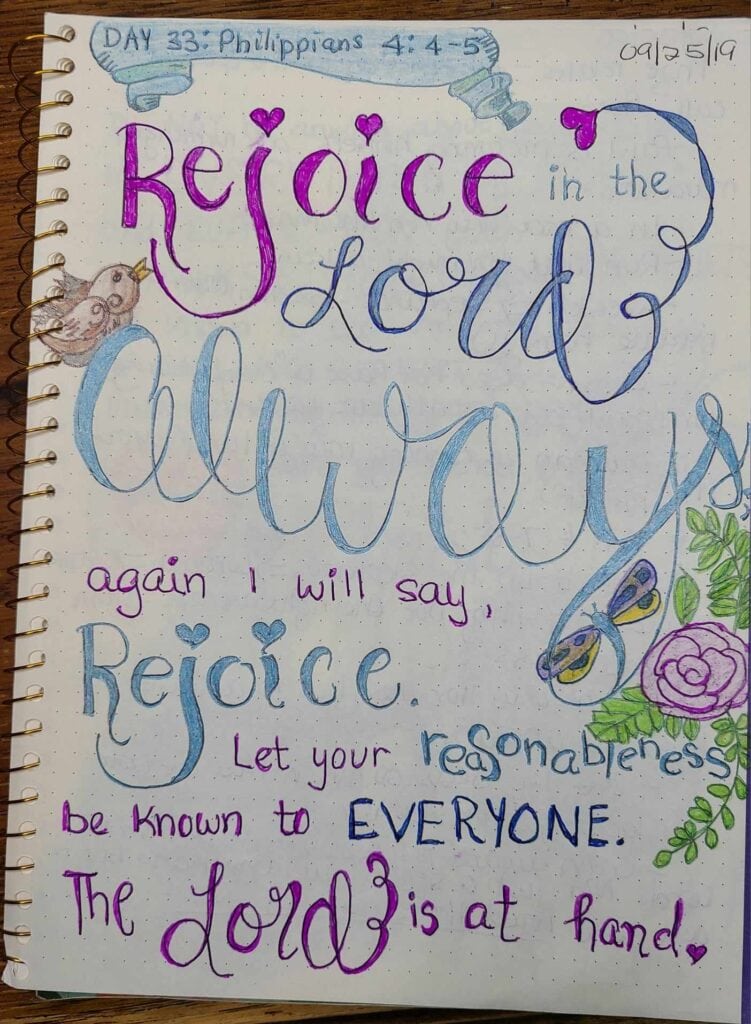 DAY 33: Philippians 4:4-5
09/25/19
Rejoice in the
Lord
always,
again I will say,
Rejoice.
Let your reasonableness
be known to EVERYONE.
The Lord is at hand.